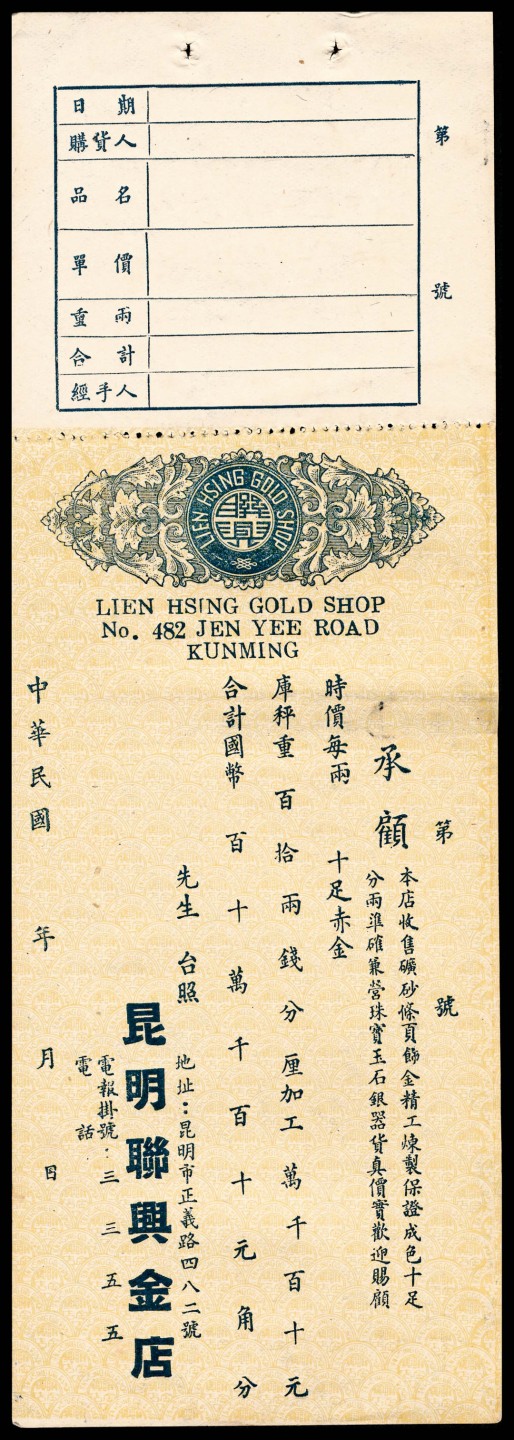 第 號
日期
購貨人
品名
單價
重兩
合計
經手人
LIEN HSING GOLD SHOP
聯興
LIEN HSING GOLD SHOP
No. 482 JEN YEE ROAD
KUNMING
第 號
承顧
本店收售礦砂條頁飾金精工煉製保證成色十足
分兩準確兼營珠寶玉石銀器貨真價實歡迎賜顧
時價每兩 十足赤金
庫秤重 百 拾 兩 錢 分 厘加工 萬 千 百 十 元
合計國幣 百 十 萬 千 百 十 元 角 分
先生 台照
地址:昆明市正義路四八二號
昆明聯興金店
電報掛號:三三五五
電話
中華民國 年 月 日